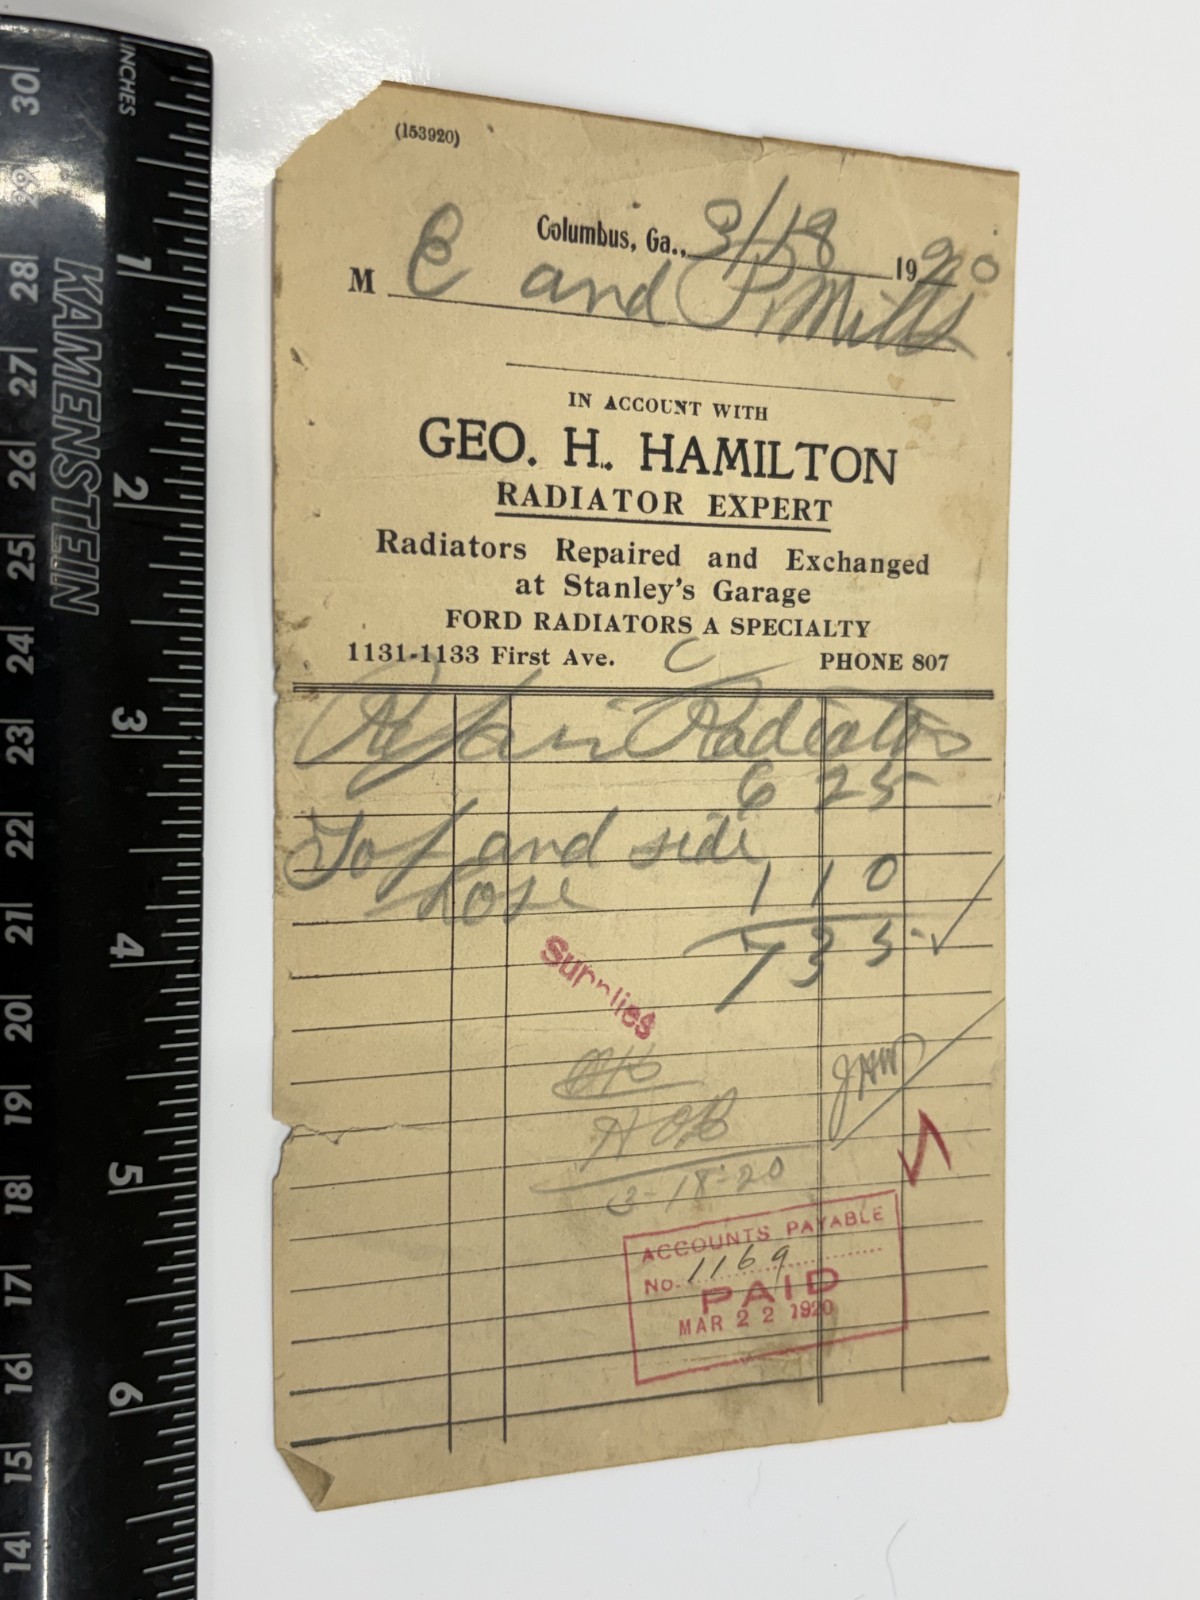 (153920)
Columbus, Ga., 3/18 1920
M E and P. Mills
IN ACCOUNT WITH
GEO. H. HAMILTON
RADIATOR EXPERT
Radiators Repaired and Exchanged
at Stanley's Garage
FORD RADIATORS A SPECIALTY
1131-1133 First Ave. C PHONE 807
Repair Radiator
6 25
Top and side
hose 1 10
7 35
Supplies
OK
JAW
3-18-20
ACCOUNTS PAYABLE
No. 1169
PAID
MAR 22 1920
INCHES
KAMENSTEIN
1
2
3
4
5
6
30
29
28
27
26
25
24
23
22
21
20
19
18
17
16
15
14